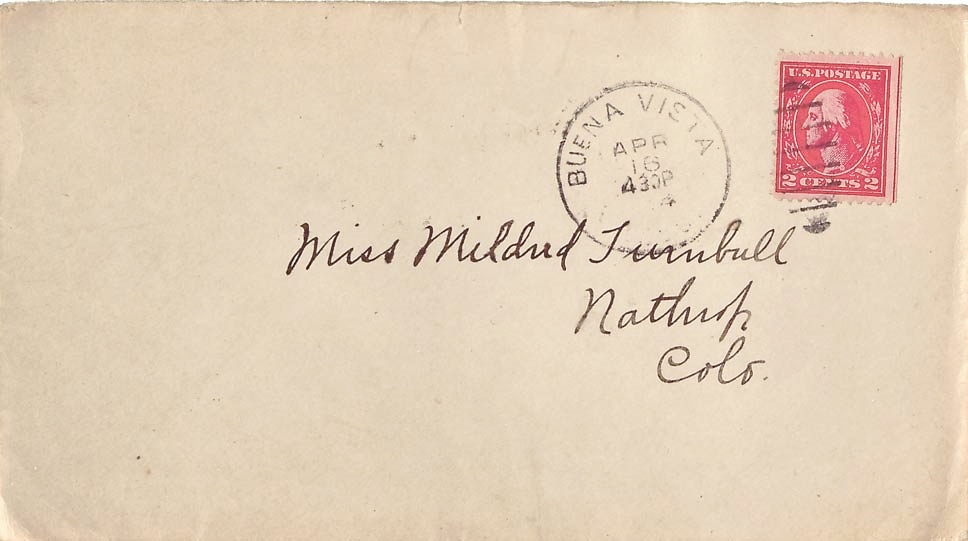 U.S. POSTAGE
2 CENTS 2
BUENA VISTA
APR
16
430P
Miss Mildred Turnbull
Nathrop
Colo.